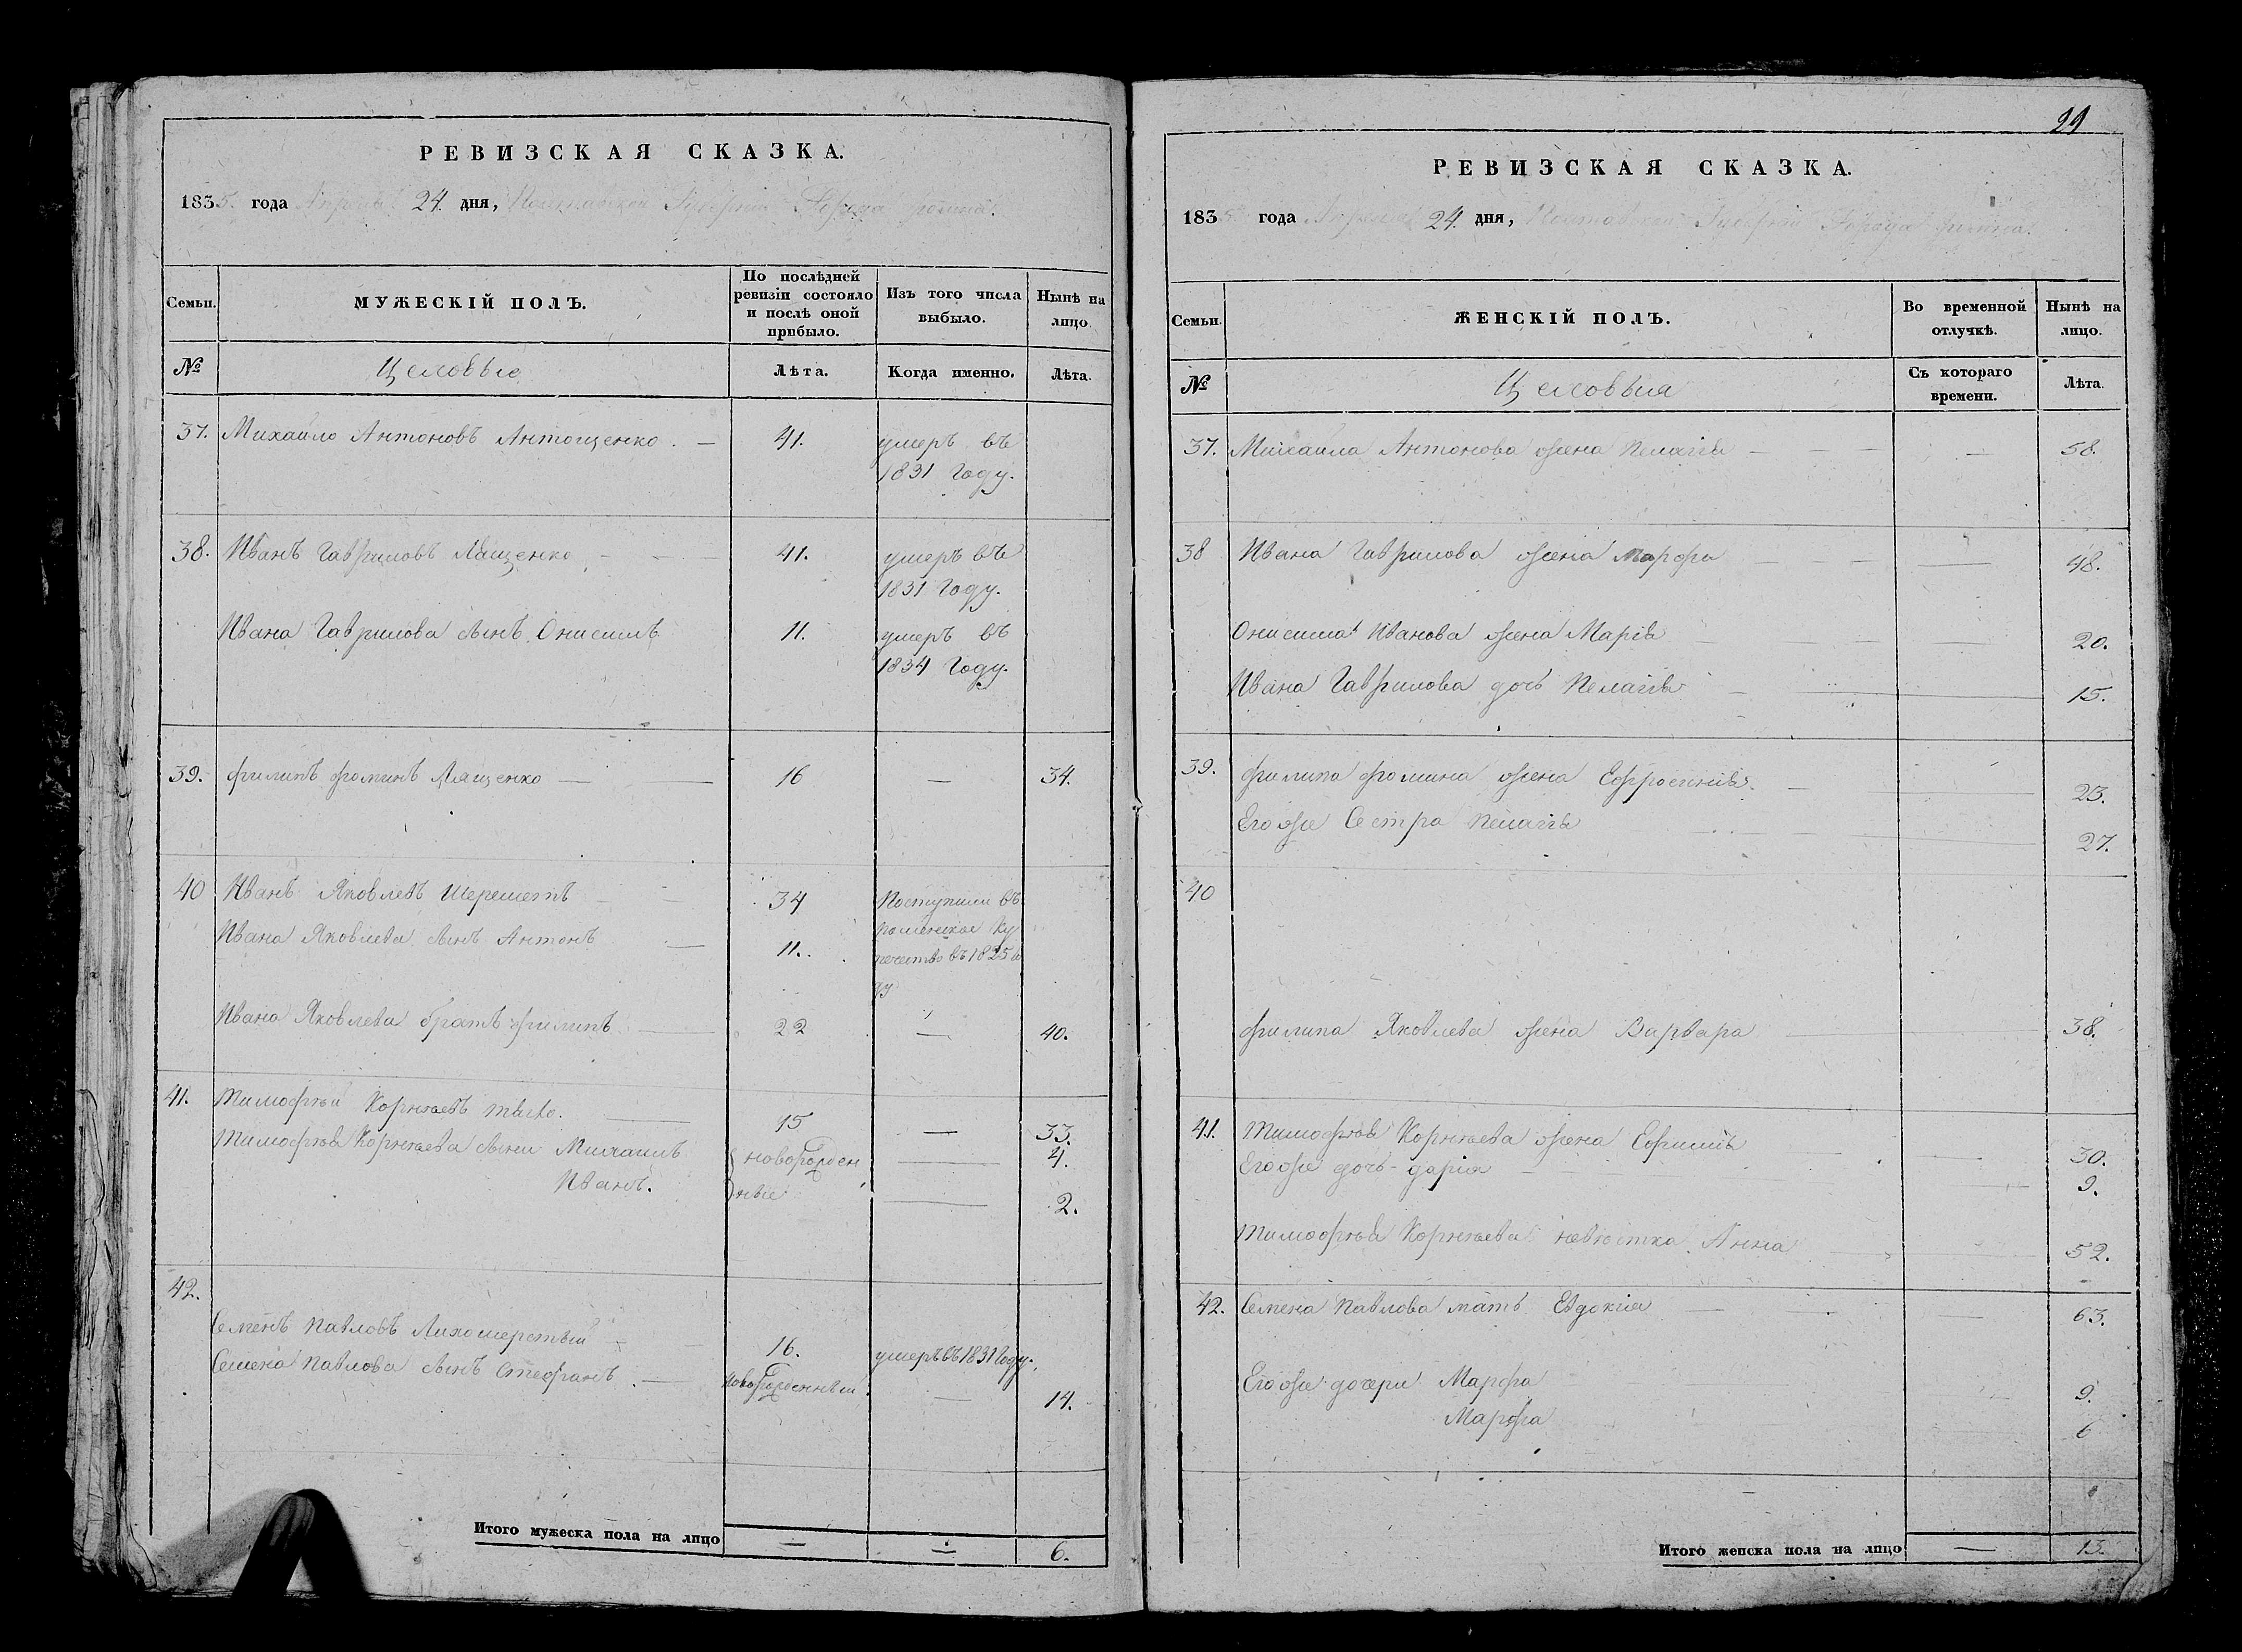 РЕВИЗСКАЯ СКАЗКА.
1835. года Апреля 24. дня, Полтавской Губернии Города Ромна.
Семьи.
МУЖЕСКІЙ ПОЛЪ.
По послѣдней ревизіи состояло и послѣ оной прибыло.
Изъ того числа выбыло.
Нынѣ на лицо.
№
Цеховые
Лѣта.
Когда именно.
Лѣта.
37. Михайло Антоновъ Антощенко. — 41. умеръ въ
1831 Году.
38. Иванъ Гавриловъ Лященко — 41. умеръ въ
1831 Году.
Ивана Гаврилова сынъ Онисимъ 11. умеръ въ
1834 Году.
39. Филипъ Фоминъ Лященко — 16 — 34.
40 Иванъ Яковлевъ Шереметъ 34 Поступили въ
Ивана Яковлева сынъ Антонъ — 11.
роменское Ку
печество въ 1825 Го
ду
Ивана Яковлева братъ Филипъ — 22 — 40.
41. Тимофѣй Корнѣевъ — 15 — 33.
Тимофѣя Корнѣева сыны Михаилъ новорожден — 4.
Иванъ. ные — 2.
42.
Семенъ Павловъ 16. умеръ въ 1831 Году.
Семена Павлова сынъ Стефанъ. — новорожденный — 14.
Итого мужеска пола на лицо — — 6.
29
РЕВИЗСКАЯ СКАЗКА.
1835 года Апреля 24. дня, Полтавской Губерніи Города Ромна.
Семьи.
ЖЕНСКІЙ ПОЛЪ.
Во временной отлучкѣ.
Нынѣ на лицо.
№
Цеховыя
Съ котораго времени.
Лѣта.
37. Михайла Антонова жена Пелагія — — — — 58.
38 Ивана Гаврилова жена Марфа — — — — 48.
Онисима Иванова жена Марія — — 20.
Ивана Гаврилова дочь Пелагія — — 15.
39. Филипа Фомина жена Ефросинія — — 23.
Его же Сестра Пелагія — 27.
40
Филипа Яковлева жена Варвара — 38.
41. Тимофѣя Корнѣева жена Ефимія — 30.
Его же дочь дарія — — 9.
Тимофѣя Корнѣева невѣстка Анна — 52.
42. Семена Павлова мать Евдокія — — 63.
Его же дочери Марфа 9.
Марфа 6
Итого женска пола на лицо — 13.